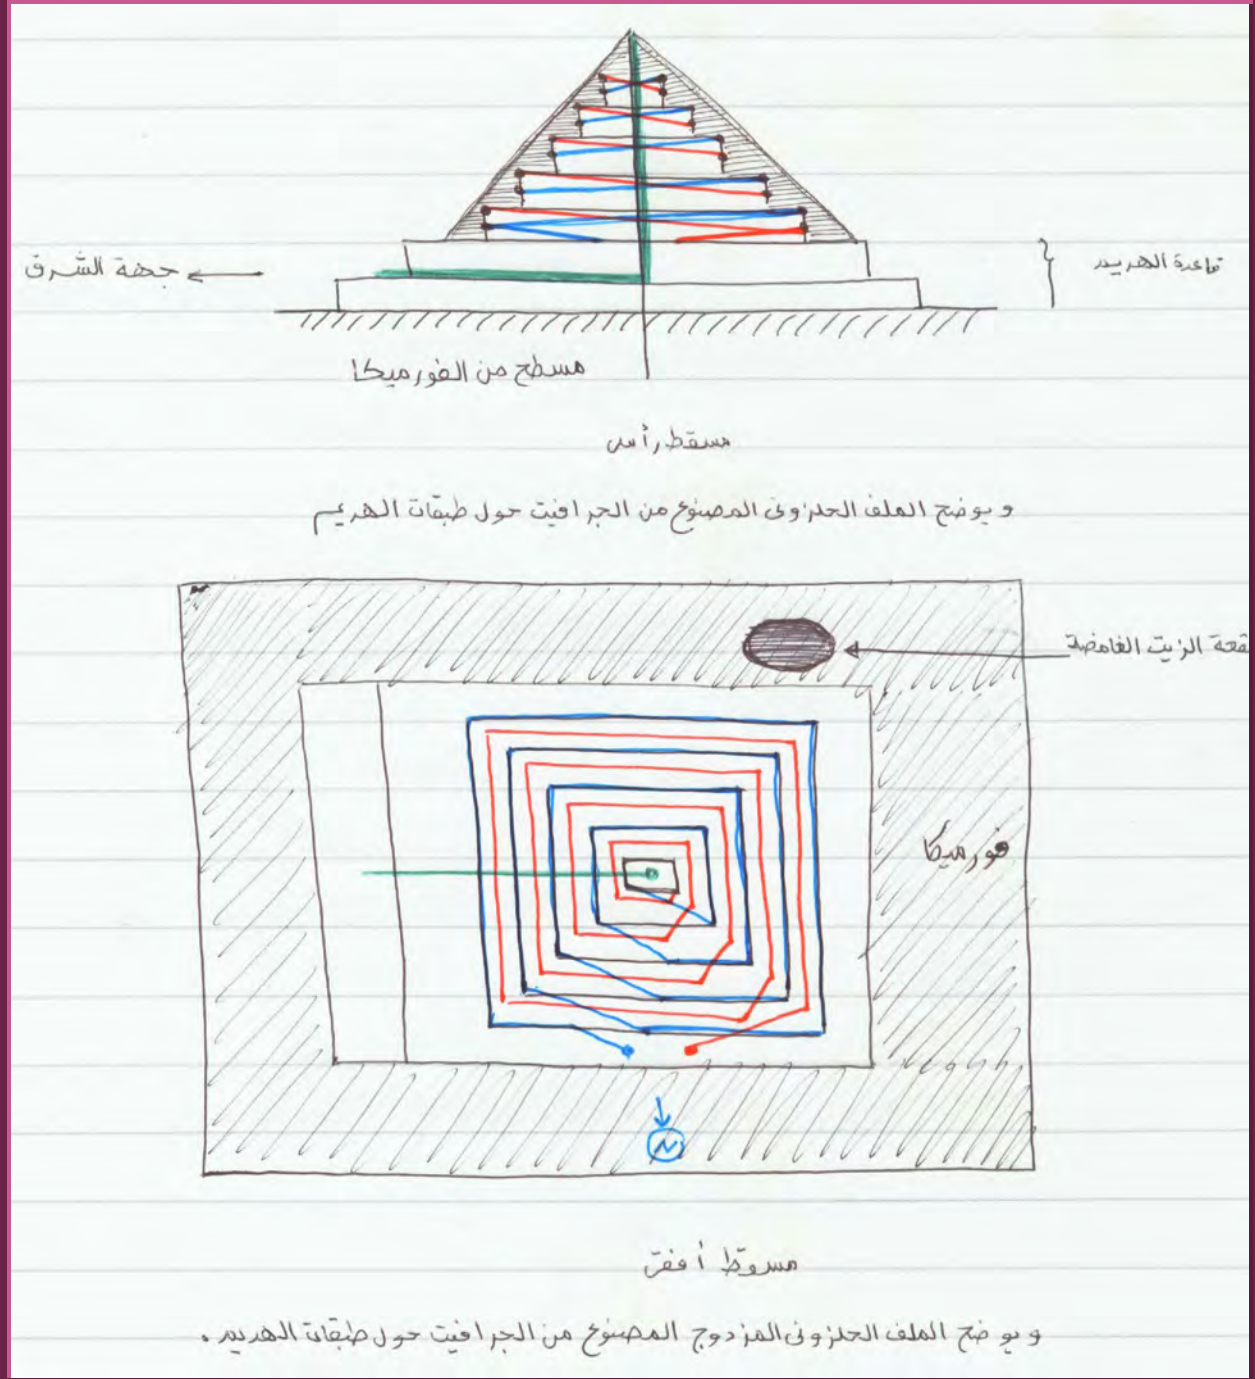 جهة الشرق
قاعدة الهريم
مسطح من الفورميكا
مسقط رأسى
و يوضح الملف الحلزونى المصنوع من الجرافيت حول طبقات الهريم
بقعة الزيت الغامضة
فورميكا
N
مسقط أفقى
و يوضح الملف الحلزونى المزدوج المصنوع من الجرافيت حول طبقات الهريم .